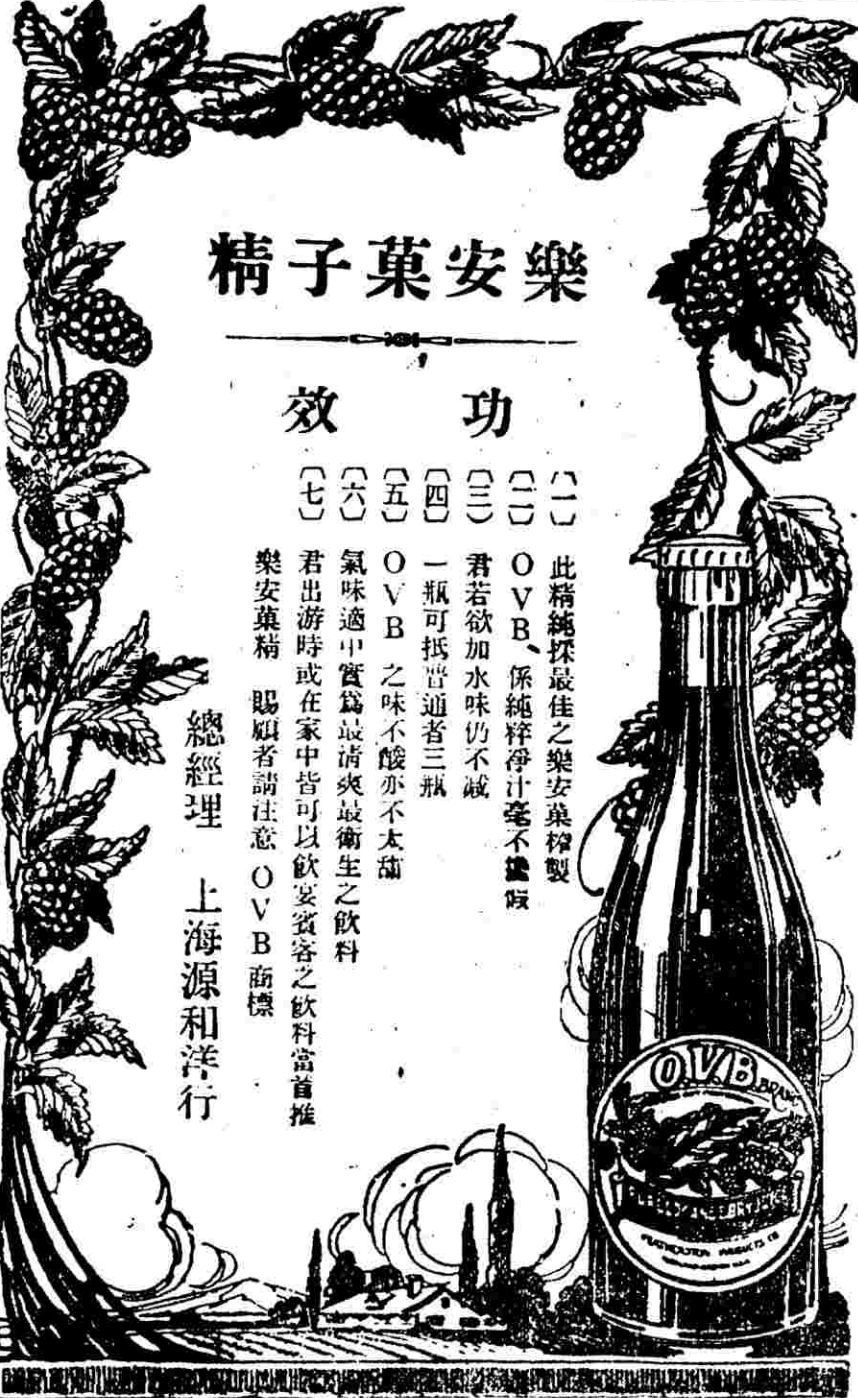 樂安菓子精
功效
〔一〕此精純採最佳之樂安菓榨製
〔二〕OVB、係純粹淨汁毫不攙假
〔三〕君若欲加水味仍不減
〔四〕一瓶可抵普通者三瓶
〔五〕OVB之味不酸亦不太甜
〔六〕氣味適中實爲最清爽最衛生之飲料
〔七〕君出游時或在家中皆可以飲宴賓客之飲料當首推
樂安菓精 賜顧者請注意OVB商標
總經理 上海源和洋行
O.V.B. BRAND